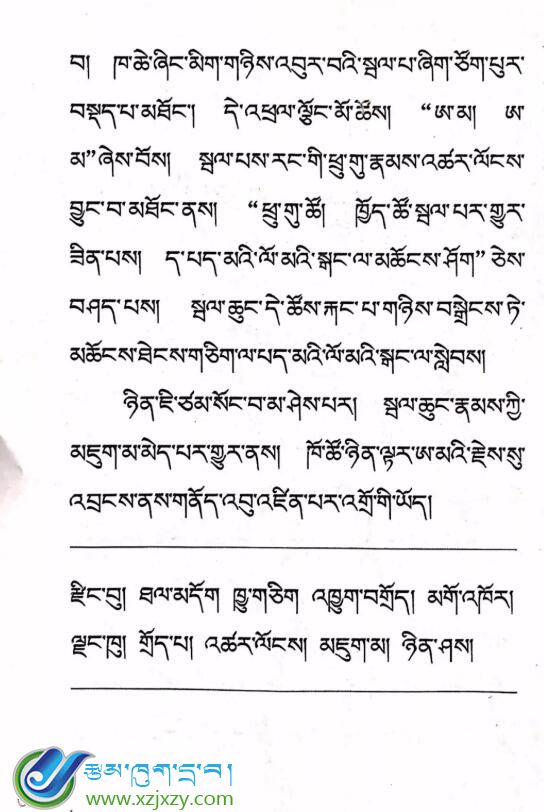 བ། ཁ་ཆེ་ཞིང་མིག་གཉིས་འབུར་བའི་སྦལ་པ་ཞིག་ཙོག་པུར་
བསྡད་པ་མཐོང་། དེ་འཕྲལ་ལྕོང་མོ་ཚོས། “ཨ་མ། ཨ་
མ”ཞེས་བོས། སྦལ་པས་རང་གི་ཕྲུ་གུ་རྣམས་འཚར་ལོངས་
བྱུང་བ་མཐོང་ནས། “ཕྲུ་གུ་ཚོ། ཁྱོད་ཚོ་སྦལ་པར་གྱུར་
ཟིན་པས། ད་པད་མའི་ལོ་མའི་སྒང་ལ་མཆོངས་ཤོག”ཅེས་
བཤད་པས། སྦལ་ཆུང་དེ་ཚོས་རྐང་པ་གཉིས་བསྒྲེངས་ཏེ་
མཆོངས་ཐེངས་གཅིག་ལ་པད་མའི་ལོ་མའི་སྒང་ལ་སླེབས།
ཉིན་ཇི་ཙམ་སོང་བ་མ་ཤེས་པར། སྦལ་ཆུང་རྣམས་ཀྱི་
མཇུག་མ་མེད་པར་གྱུར་ནས། ཁོ་ཚོ་ཉིན་ལྟར་ཨ་མའི་རྗེས་སུ་
འབྲངས་ནས་གནོད་འབུ་འཛིན་པར་འགྲོ་གི་ཡོད།
རྫིང་བུ། ཐལ་མདོག ཁྱུ་གཅིག འཁྱུག་བགྲོད། མགོ་འཁོར།
ལྗང་ཁུ། གྲོད་པ། འཚར་ལོངས། མཇུག་མ། ཉིན་ཤས།
རྩམ་ཁུག་དྲ་བ།
www.xzjxzy.com